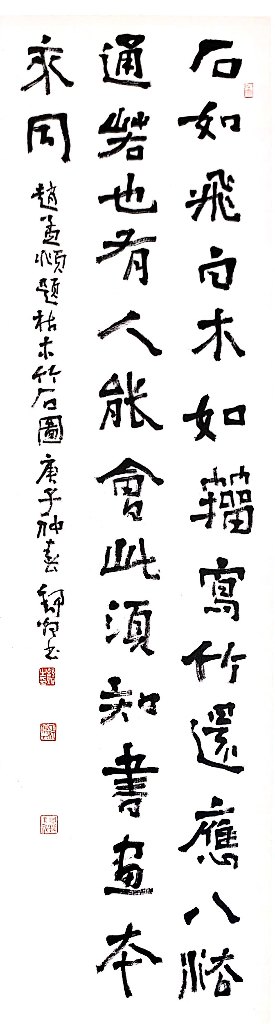 石如飛白木如籀寫竹還應八法
通若也有人能會此須知書畫本
來同 趙孟頫題枯木竹石圖 庚子仲春 書